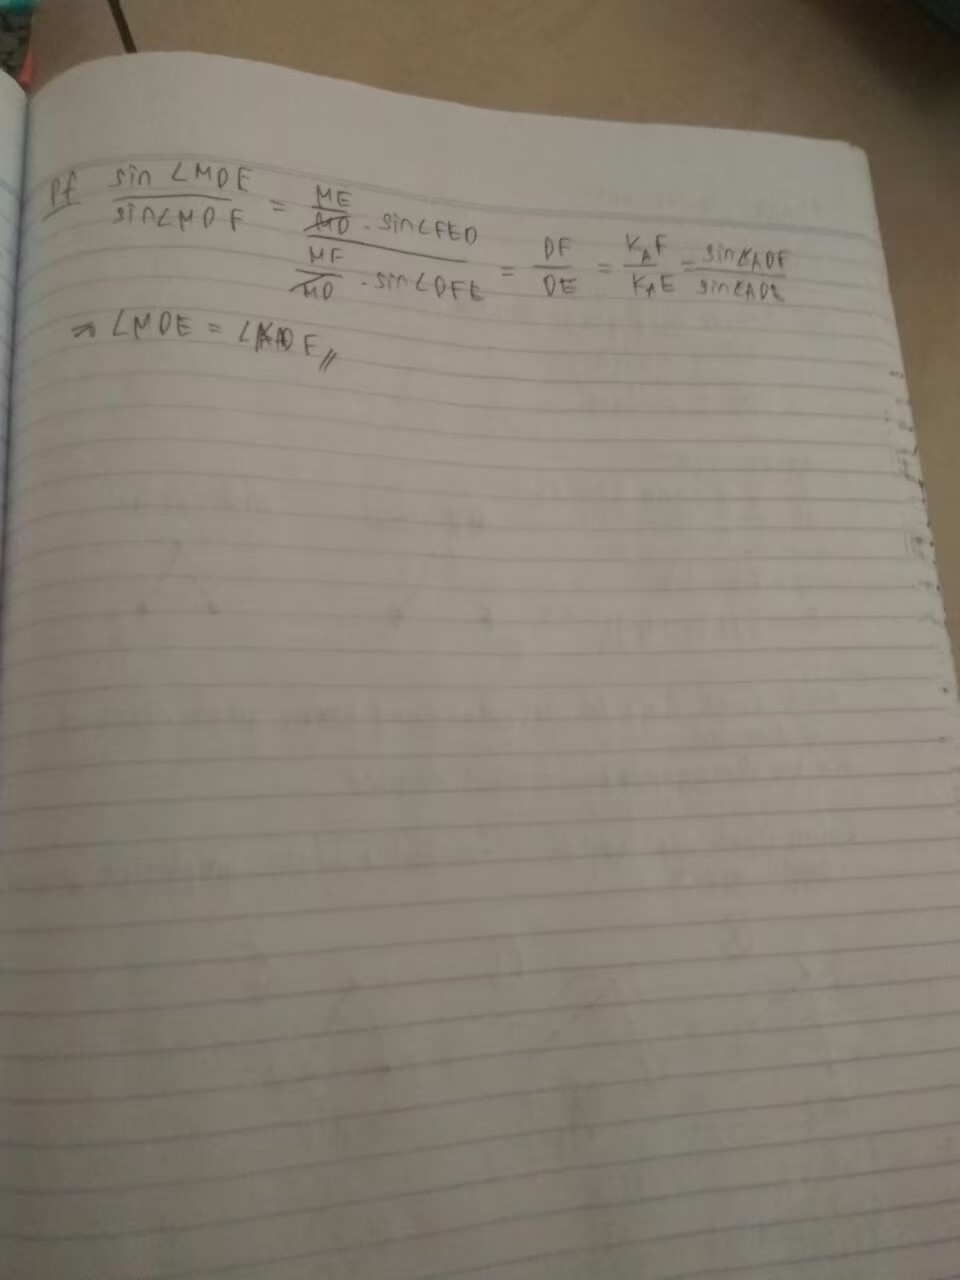 Pf sin ∠MDE / sin ∠MDF = (ME/MD · sin∠FED) / (MF/MD · sin∠DFE) = DF/DE = K_AF/K_AE = sin∠K_ADF / sin∠K_ADE
⇒ ∠MDE = ∠K_ADF //